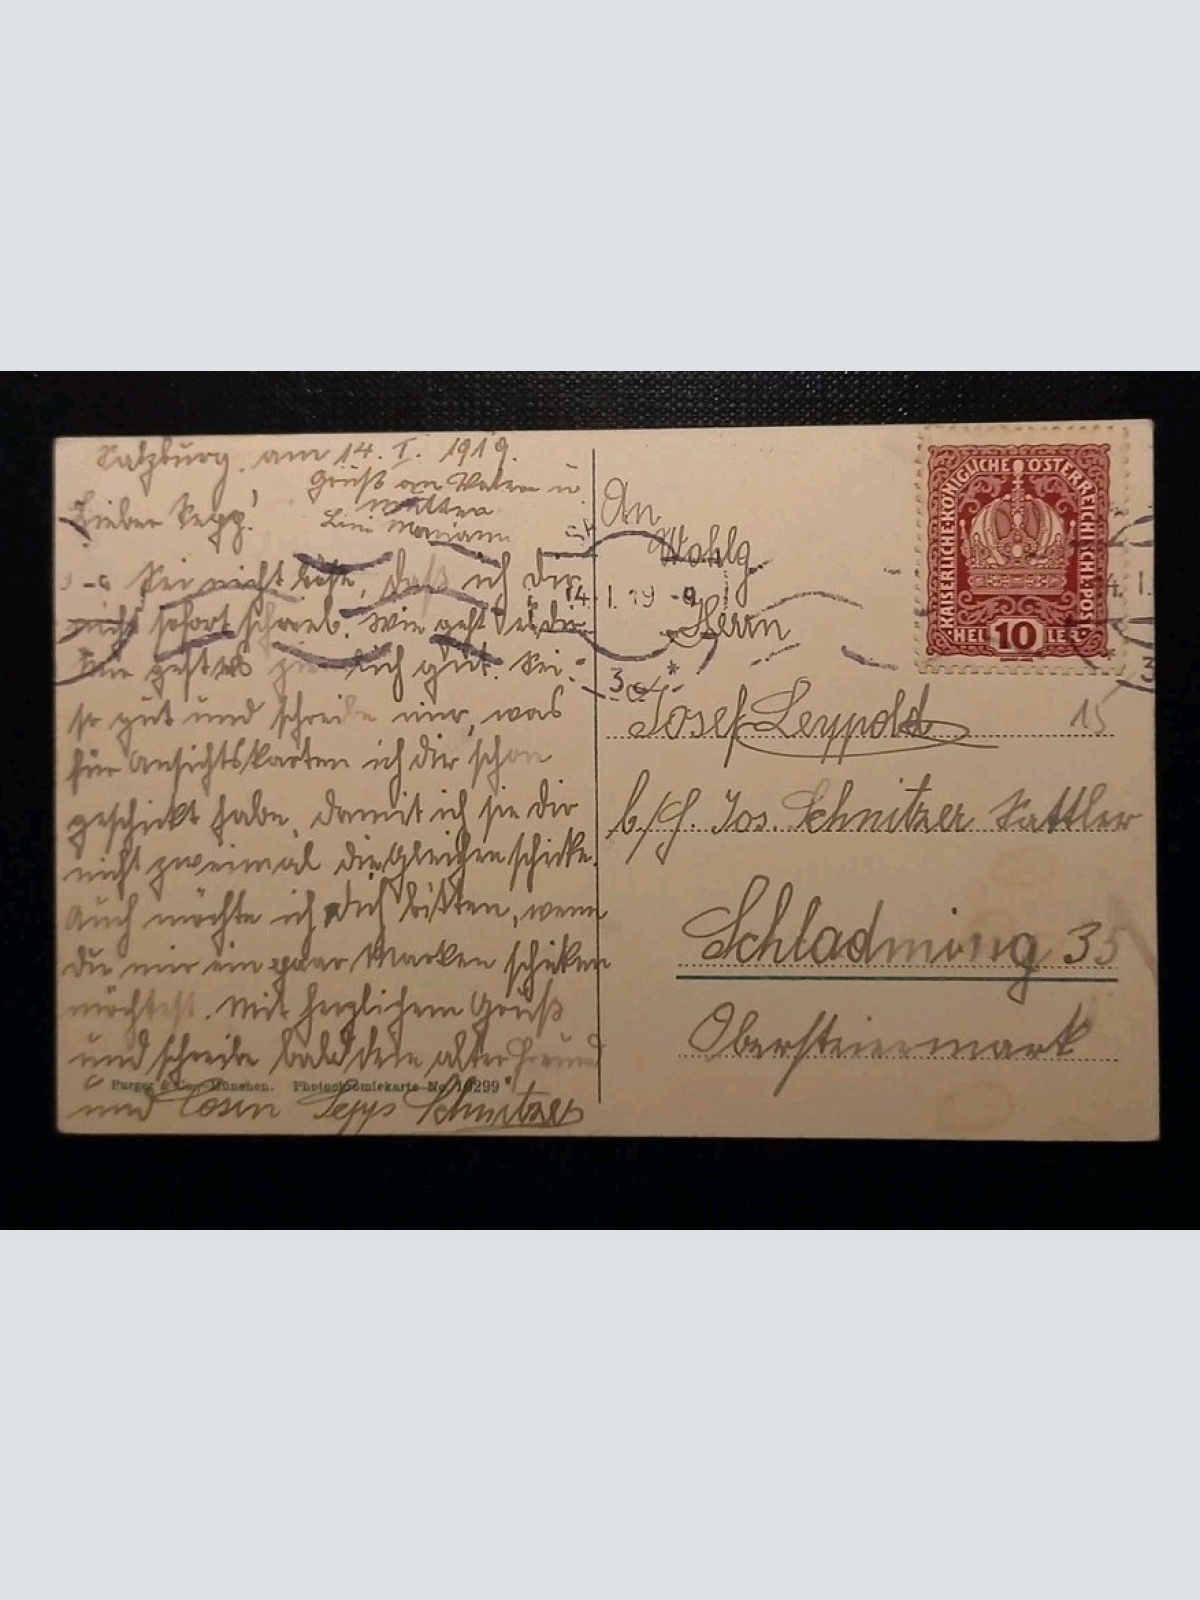 Salzburg, am 14. I. 1919.
Grüß an Vater u.
Mutter
Lini Mariann
Lieber Sepp!
Sei nicht böse, daß ich dir
nicht sofort schrieb. Wie geht es dir
mir geht es ziemlich gut. Sei
so gut und schreibe mir, was
für Ansichtskarten ich dir schon
geschickt habe, damit ich sie dir
nicht zweimal die gleichen schicke.
Auch möchte ich dich bitten, wenn
du mir ein paar Marken schicken
möchtest. Mit herzlichem Gruß
und schreibe bald dein alter Freund
Purger & Co., München. Photochromiekarte No. 10299
und Cosin Sepp Schnitzer
An
Wohlg
Herrn
Josef Leypold
b./H. Jos. Schnitzer Sattler
Schladming 35
Obersteiermark
15
KAISERLICHE KÖNIGLICHE ÖSTERREICHISCHE POST
HELLER 10
14. I. 19 -9
3